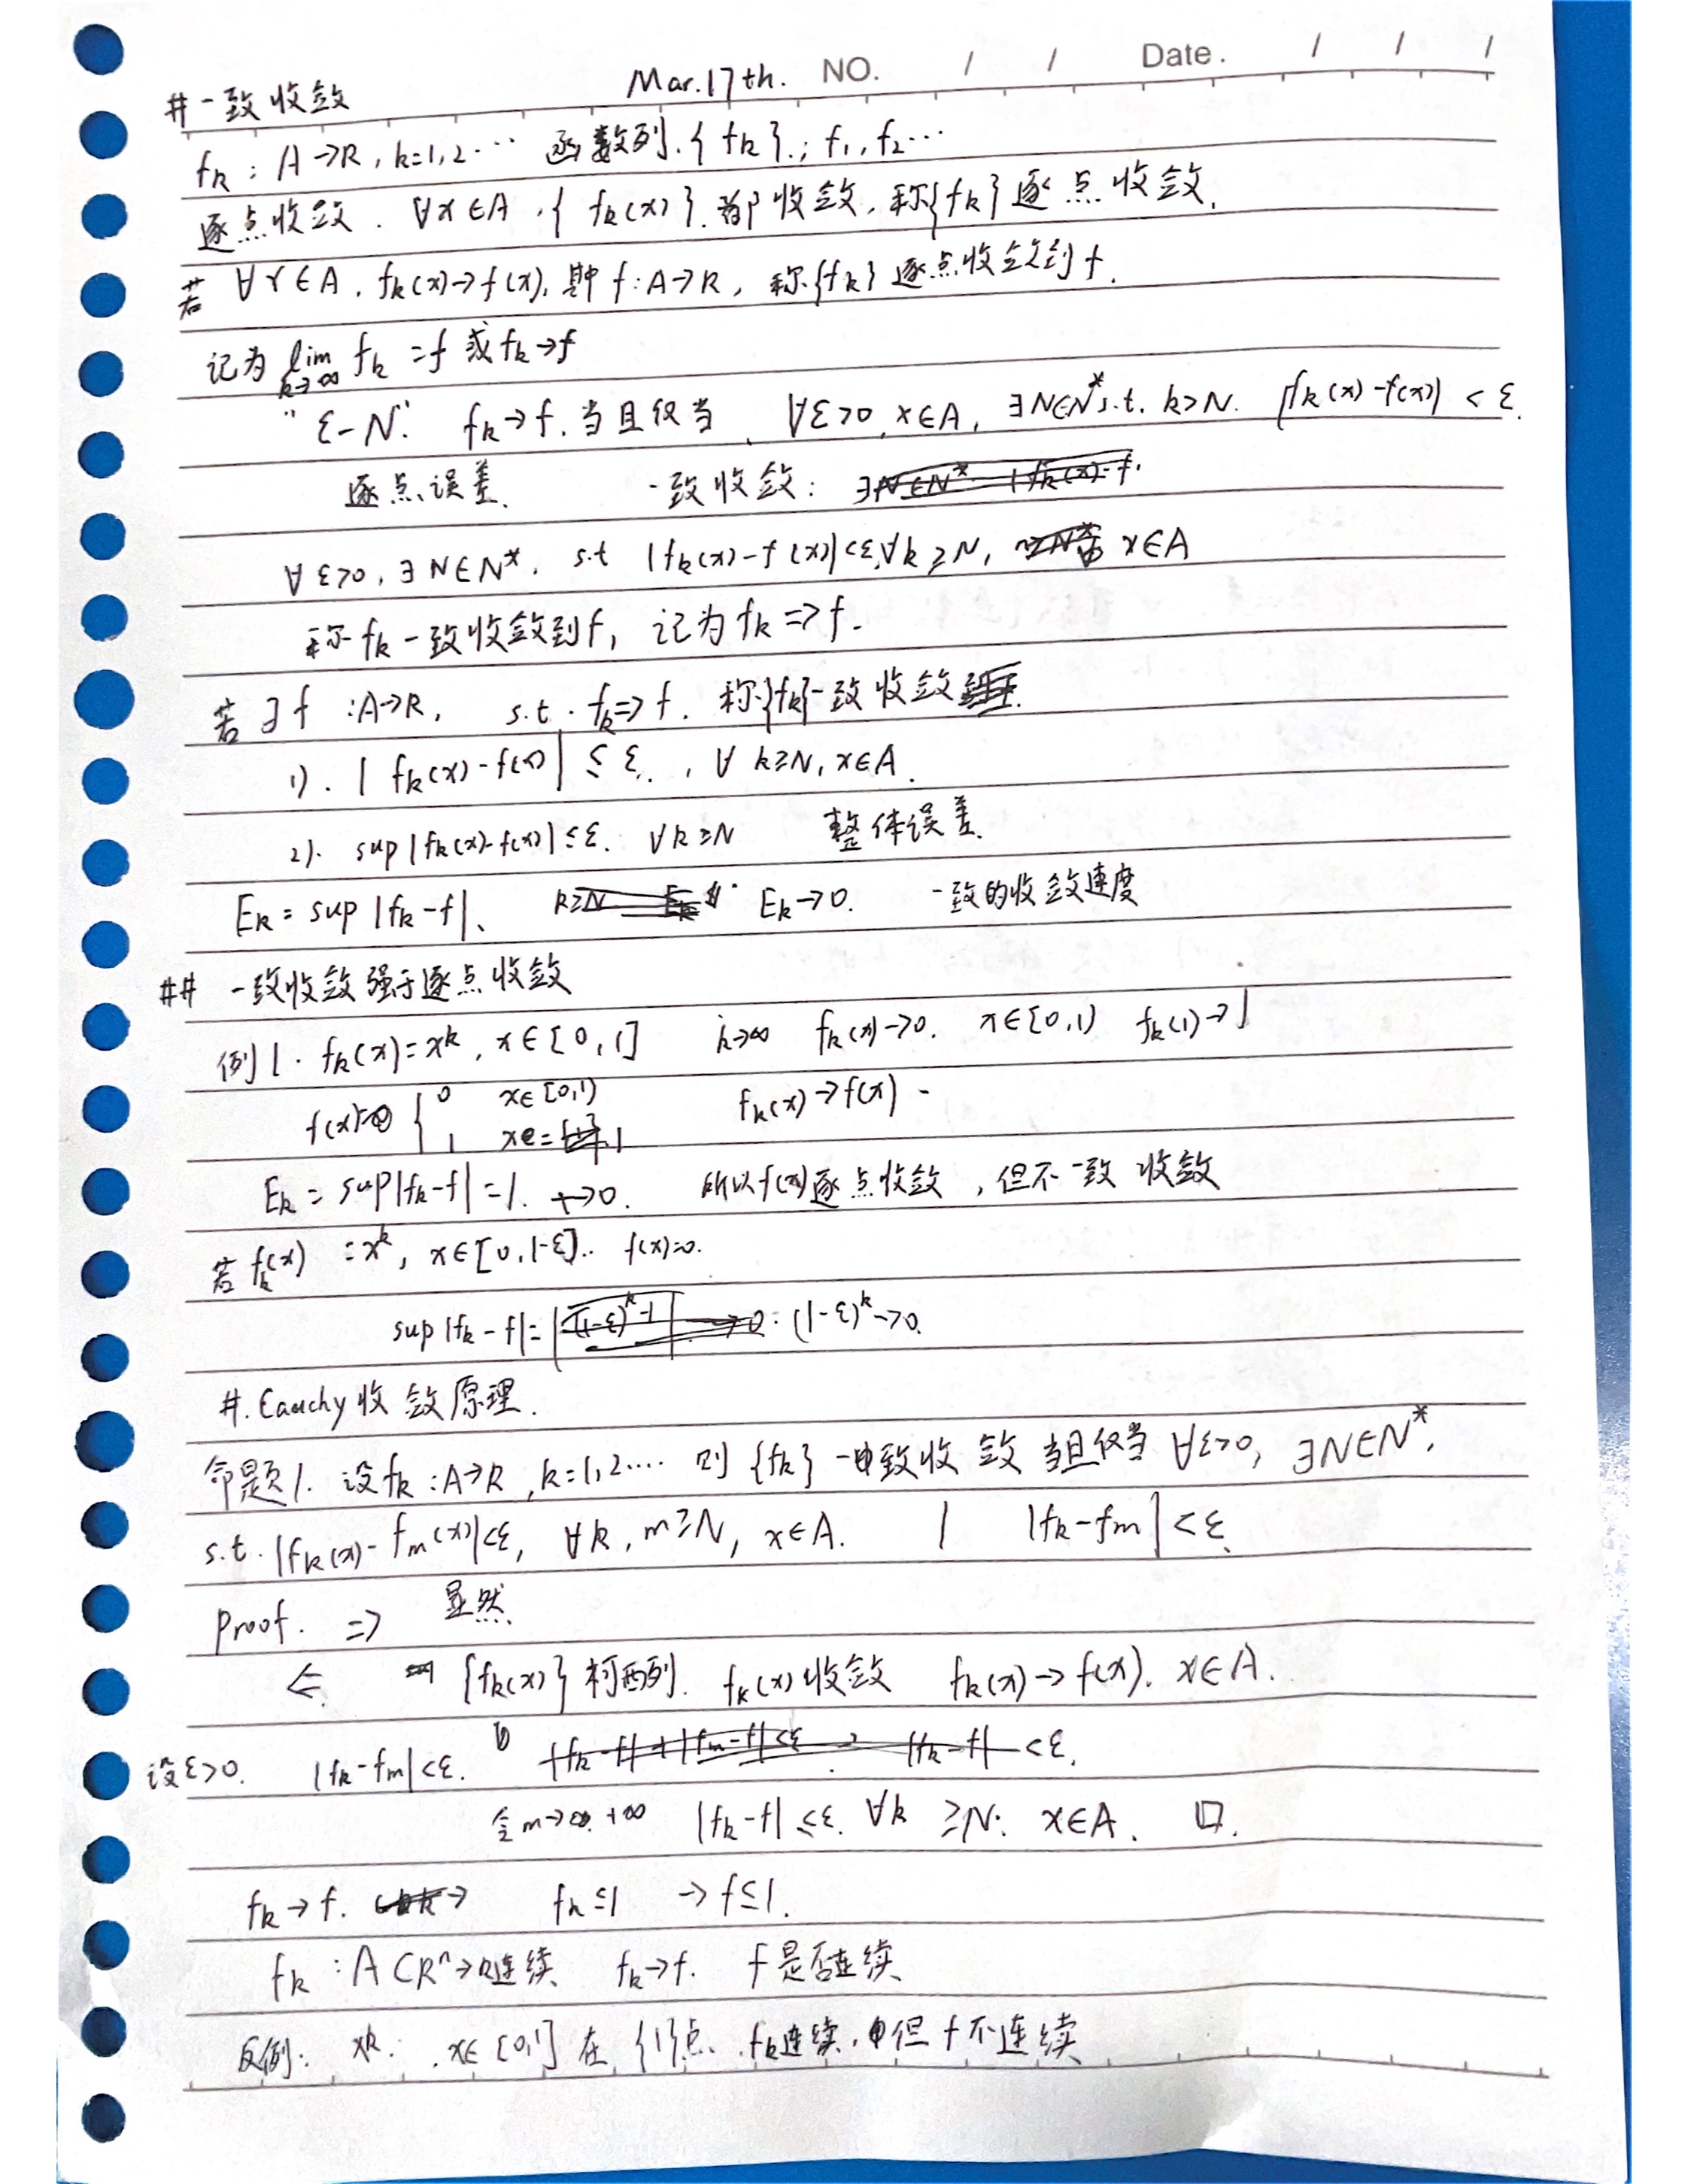 Mar.17th. NO. / / Date. / / /
# 一致收敛
fk : A→R, k=1,2… 函数列.{ fk }.; f1, f2…
逐点收敛. ∀x∈A, { fk(x) }.都收敛, 称{fk}逐点收敛.
若 ∀x∈A, fk(x)→f(x), 其中 f:A→R, 称{fk}逐点收敛到f.
记为 lim k→∞ fk =f 或 fk→f
"ε-N". fk→f. 当且仅当, ∀ε>0, x∈A, ∃N∈N* s.t. k>N. |fk(x)-f(x)| < ε.
逐点误差. 一致收敛:
∀ε>0, ∃N∈N*, s.t |fk(x)-f(x)|<ε, ∀k≥N, x∈A
称 fk 一致收敛到f, 记为 fk => f.
若 ∃f :A→R, s.t. fk=>f. 称{fk}一致收敛
1). | fk(x)-f(x) | ≤ ε., ∀ k≥N, x∈A.
2). sup|fk(x)-f(x)|≤ε. ∀k≥N 整体误差.
Ek = sup |fk-f|、 Ek→0. 一致的收敛速度
## 一致收敛强于逐点收敛
例1. fk(x)=x^k, x∈[0,1] k→∞ fk(x)→0. x∈[0,1) fk(1)→1
f(x)= { 0 x∈[0,1) fk(x)→f(x)
1 x=1
Ek = sup|fk-f| =1. ↛0. 所以f(x)逐点收敛, 但不一致收敛
若 fk(x) =x^k, x∈[0,1-ε].. f(x)=0.
sup|fk-f|= (1-ε)^k→0.
#. Cauchy收敛原理.
命题1. 设fk :A→R, k=1,2…. 则{fk}一致收敛当且仅当 ∀ε>0, ∃N∈N*,
s.t. |fk(x)-fm(x)|<ε, ∀k, m≥N, x∈A. | |fk-fm|<ε.
Proof. => 显然.
<=. {fk(x)}柯西列. fk(x)收敛 fk(x)→f(x). x∈A.
设ε>0. |fk-fm|<ε. <ε.
令m→+∞ |fk-f|≤ε. ∀k ≥N. x∈A. □.
fk→f. fk≤1 →f≤1.
fk :A⊂R^n→R连续 fk→f. f是否连续
反例: x^k. x∈[0,1] 在{1}点. fk连续, 但f不连续